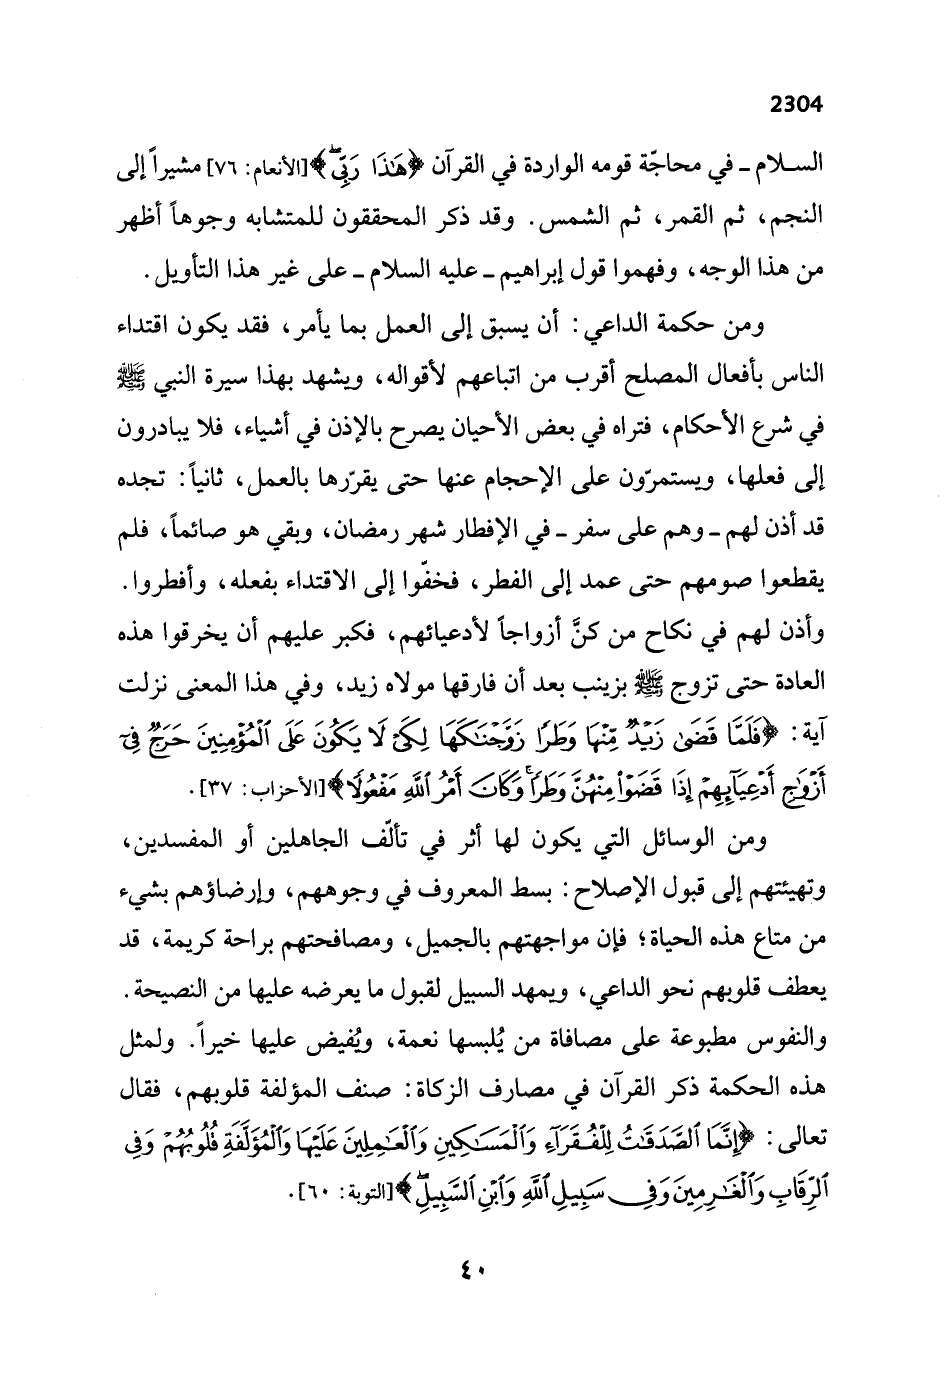 2304
السلام ـ في محاجّة قومه الواردة في القرآن ﴿هَٰذَا رَبِّي﴾ [الأنعام: ٧٦] مشيراً إلى
النجم، ثم القمر، ثم الشمس. وقد ذكر المحققون للمتشابه وجوهاً أظهر
من هذا الوجه، وفهموا قول إبراهيم ـ عليه السلام ـ على غير هذا التأويل.
ومن حكمة الداعي: أن يسبق إلى العمل بما يأمر، فقد يكون اقتداء
الناس بأفعال المصلح أقرب من اتباعهم لأقواله، ويشهد بهذا سيرة النبي ﷺ
في شرع الأحكام، فتراه في بعض الأحيان يصرح بالإذن في أشياء، فلا يبادرون
إلى فعلها، ويستمرّون على الإحجام عنها حتى يقرّرها بالعمل، ثانياً: تجده
قد أذن لهم ـ وهم على سفر ـ في الإفطار شهر رمضان، وبقي هو صائماً، فلم
يقطعوا صومهم حتى عمد إلى الفطر، فخفّوا إلى الاقتداء بفعله، وأفطروا.
وأذن لهم في نكاح من كنَّ أزواجاً لأدعيائهم، فكبر عليهم أن يخرقوا هذه
العادة حتى تزوج ﷺ بزينب بعد أن فارقها مولاه زيد، وفي هذا المعنى نزلت
آية: ﴿فَلَمَّا قَضَىٰ زَيْدٌ مِّنْهَا وَطَرًا زَوَّجْنَاكَهَا لِكَيْ لَا يَكُونَ عَلَى الْمُؤْمِنِينَ حَرَجٌ فِي
أَزْوَاجِ أَدْعِيَائِهِمْ إِذَا قَضَوْا مِنْهُنَّ وَطَرًا ۚ وَكَانَ أَمْرُ اللَّهِ مَفْعُولًا﴾ [الأحزاب: ٣٧].
ومن الوسائل التي يكون لها أثر في تألّف الجاهلين أو المفسدين،
وتهيئتهم إلى قبول الإصلاح: بسط المعروف في وجوههم، وإرضاؤهم بشيء
من متاع هذه الحياة؛ فإن مواجهتهم بالجميل، ومصافحتهم براحة كريمة، قد
يعطف قلوبهم نحو الداعي، ويمهد السبيل لقبول ما يعرضه عليها من النصيحة.
والنفوس مطبوعة على مصافاة من يُلبسها نعمة، ويُفيض عليها خيراً. ولمثل
هذه الحكمة ذكر القرآن في مصارف الزكاة: صنف المؤلفة قلوبهم، فقال
تعالى: ﴿إِنَّمَا الصَّدَقَاتُ لِلْفُقَرَاءِ وَالْمَسَاكِينِ وَالْعَامِلِينَ عَلَيْهَا وَالْمُؤَلَّفَةِ قُلُوبُهُمْ وَفِي
الرِّقَابِ وَالْغَارِمِينَ وَفِي سَبِيلِ اللَّهِ وَابْنِ السَّبِيلِ﴾ [التوبة: ٦٠].
٤٠